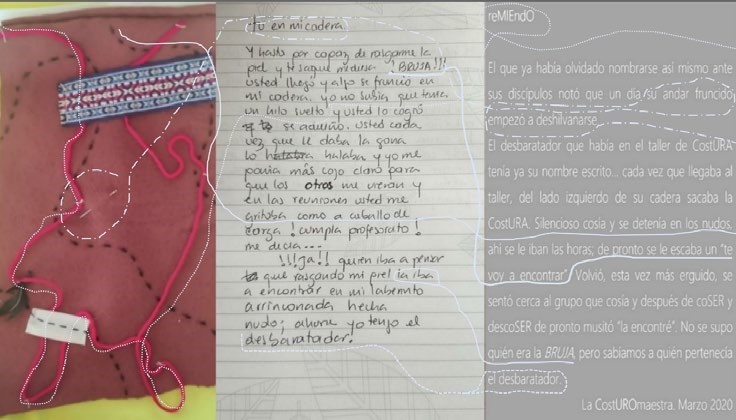 Tu en mi cadera.
Y hasta por capaz de rasgarme la
piel y te saque maldita ¡BRUJA!!!
usted llegó y algo se frunció en
mi cadera, yo no sabía que tenía
un hilo suelto y usted lo logró
se adueñó. Usted cada
vez que le daba la gana
lo halaba y yo me
ponía más cojo claro para
que los otros me vieran y
en las reuniones usted me
gritaba como a caballo de
carga ¡cumpla profesorato!
me decía...
¡¡¡Ja!! quien iba a pensar
que rasgando mi piel la iba
a encontrar en mi laberinto
arrinconada hecha
nudo; ahora yo tengo el
desbaratador.
reMIEndO
El que ya había olvidado nombrarse así mismo ante
sus discípulos notó que un día su andar fruncido
empezó a deshilvanarse.
El desbaratador que había en el taller de CostURA
tenía ya su nombre escrito... cada vez que llegaba al
taller, del lado izquierdo de su cadera sacaba la
CostURA. Silencioso cosía y se detenía en los nudos,
ahí se le iban las horas; de pronto se le escaba un "te
voy a encontrar". Volvió, esta vez más erguido, se
sentó cerca al grupo que cosía y después de coSER y
descoSER de pronto musitó "la encontré". No se supo
quién era la BRUJA, pero sabíamos a quién pertenecía
el desbaratador.
La CostUROmaestra. Marzo 2020